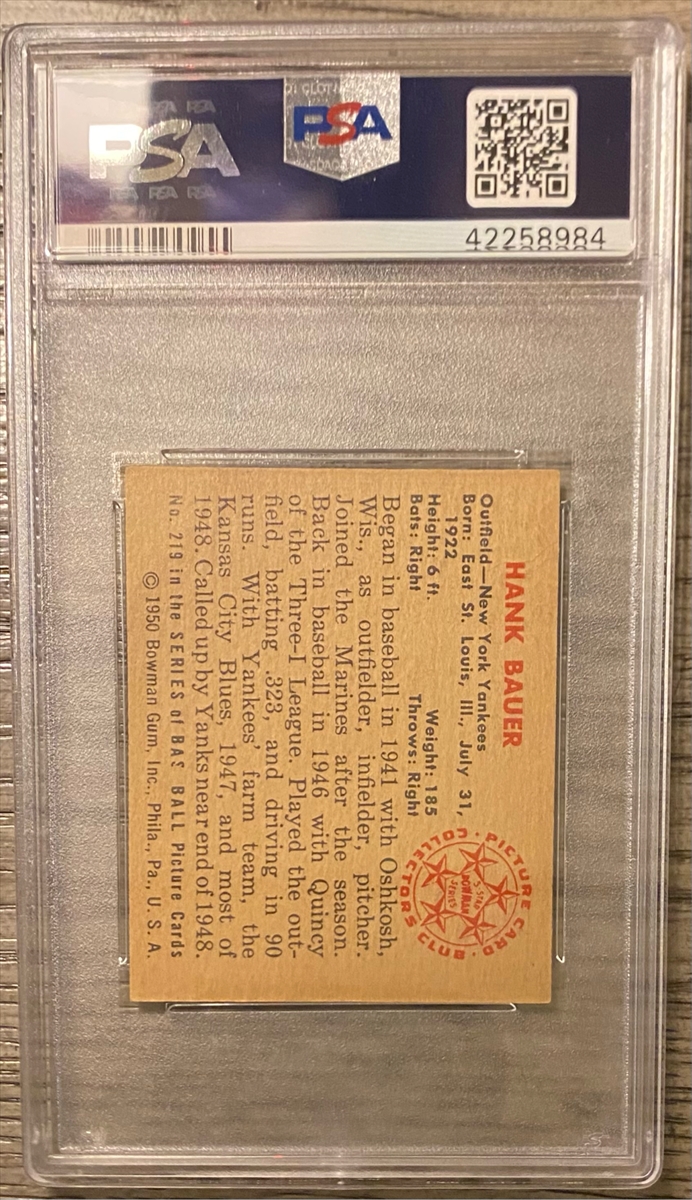 PSA PSA
PSA
PSA PSA PSA
PSA
42258984
HANK BAUER
Outfield—New York Yankees
Born: East St. Louis, Ill., July 31,
1922
Height: 6 ft. Weight: 185
Bats: Right Throws: Right
Began in baseball in 1941 with Oshkosh,
Wis., as outfielder, infielder, pitcher.
Joined the Marines after the season.
Back in baseball in 1946 with Quincy
of the Three-I League. Played the out-
field, batting .323, and driving in 90
runs. With Yankees' farm team, the
Kansas City Blues, 1947, and most of
1948. Called up by Yanks near end of 1948.
No. 219 in the SERIES of BAS BALL Picture Cards
© 1950 Bowman Gum, Inc., Phila., Pa., U. S. A.
PICTURE CARD COLLECTORS CLUB
5-STAR
BOWMAN
SERIES